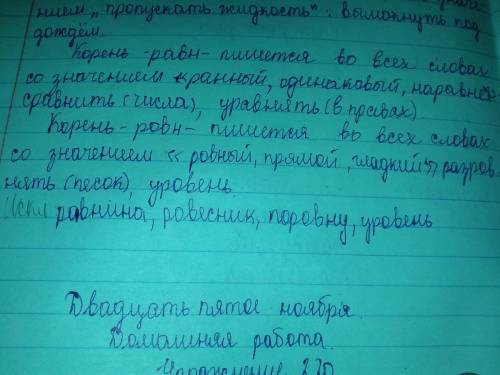 нием „пропускать жидкость": вымокнуть под
дождём.
Корень -равн- пишется во всех словах
со значением «ранный, одинаковый, наравне»:
сравнить (числа), уравнять (в правах).
Корень -ровн- пишется во всех словах
со значением « ровный, прямой, гладкий»: разров-
нять (песок), уровень.
Искл равнина, ровесник, поровну, уровень
Двадцать пятое ноября.
Домашняя работа.
Упражнение 220